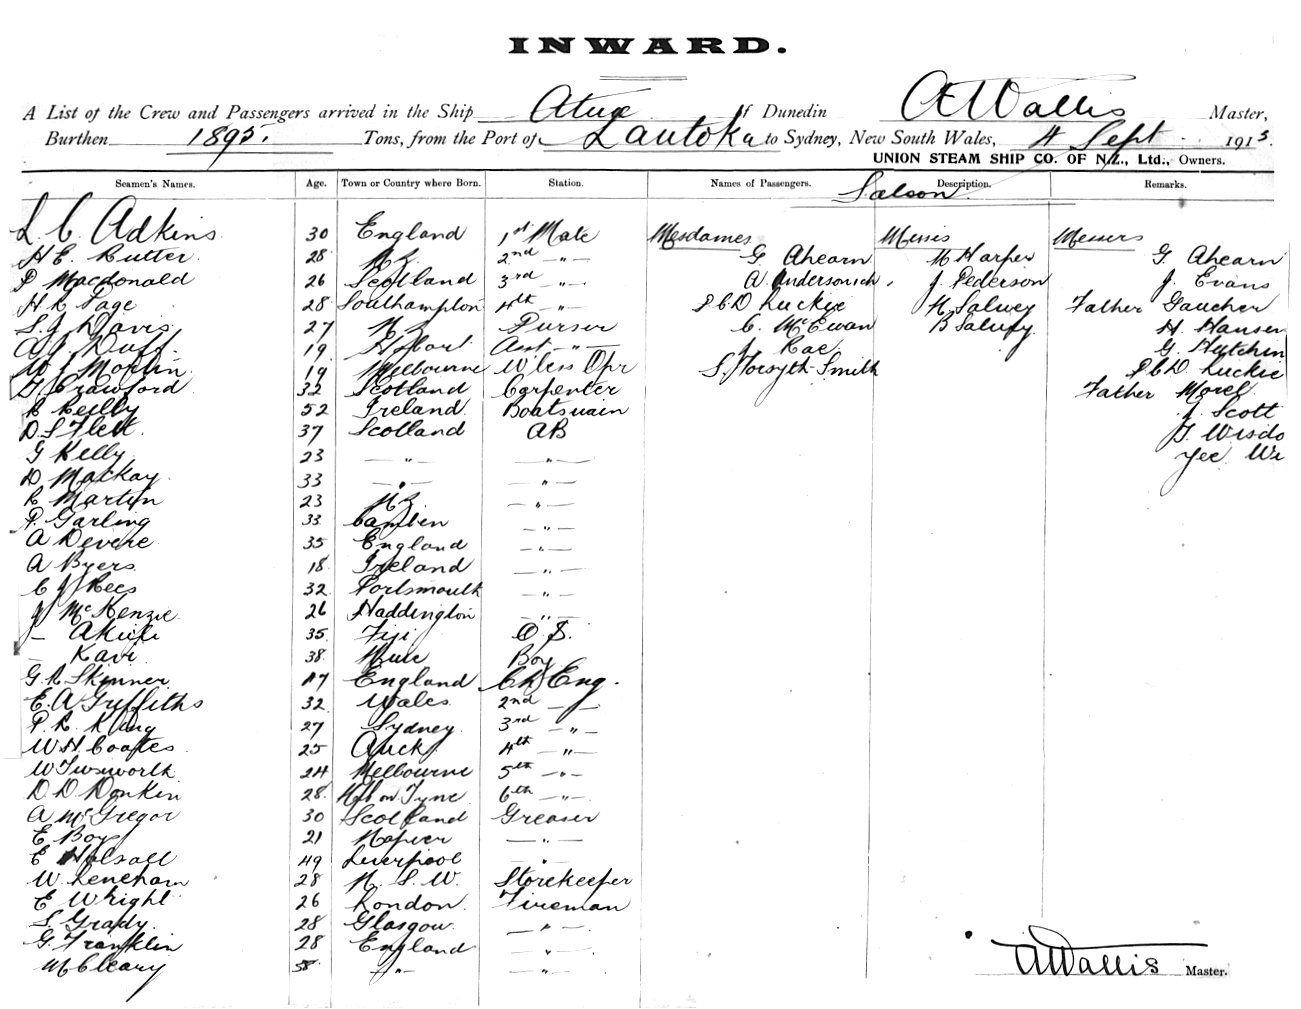 INWARD.
A List of the Crew and Passengers arrived in the Ship Atua of Dunedin A Wallis Master,
Burthen 1895. Tons, from the Port of Lautoka to Sydney, New South Wales, 4 Sept 1913.
UNION STEAM SHIP CO. OF N.Z., Ltd., Owners.
Seamen's Names. Age. Town or Country where Born. Station. Names of Passengers. Description. Remarks.
Saloon
L. C. Adkins 30 England 1st Mate Mesdames Misses Messrs
H E. Cutter 28 N.Z. 2nd -"- G Ahearn M Harper G. Ahearn
P Macdonald 26 Scotland 3rd -"- A Andersonich J. Pederson J. Evans
H. R Page 28 Southampton 4th -"- P C D Luckie N Salwey Father Gaucher
S. J Davis 27 N Z Purser C. McEwan B Salwey H. Hansen
A J. Duff 19 Hobart Asst -"- J Rae G. Hutchin
W J Morlin 19 Melbourne W'less Opr S. Forsyth-Smith P C D. Luckie
Crawford 32 Scotland Carpenter Father Morel
R Reilly 52 Ireland Boatswain J. Scott
D. S Flett 37 Scotland AB G. Wisdo
G Kelly 23 -"- -"- Yee We
D Mackay 33 -"- -"-
R Martin 23 N Z. -"-
P. Garling 33 Camden -"-
A Devere 35 England -"-
A Byers 18 Ireland -"-
C J Rees 32 Portsmouth -"-
J McKenzie 26 Haddington -"-
- Akuila 35 Fiji O. S.
- Kavi 38 Niue Boy
G. R Skinner 47 England Ch Eng.
E. A Griffiths 32 Wales 2nd -"-
P. R. King 27 Sydney 3rd -"-
W H. Coates 25 Auck 4th -"-
W 24 Melbourne 5th -"-
D. D Donkin 28 N. on Tyne 6th -"-
A McGregor 30 Scotland Greaser
E Boy 21 Napier -"-
E Halsall 49 Liverpool -"-
W Leneham 28 N. S. W. Storekeeper
E Wright 26 London Fireman
S Grady 28 Glasgow -"-
G. Franklin 28 England -"-
M Cleary 38 -"- -"-
A Wallis Master.